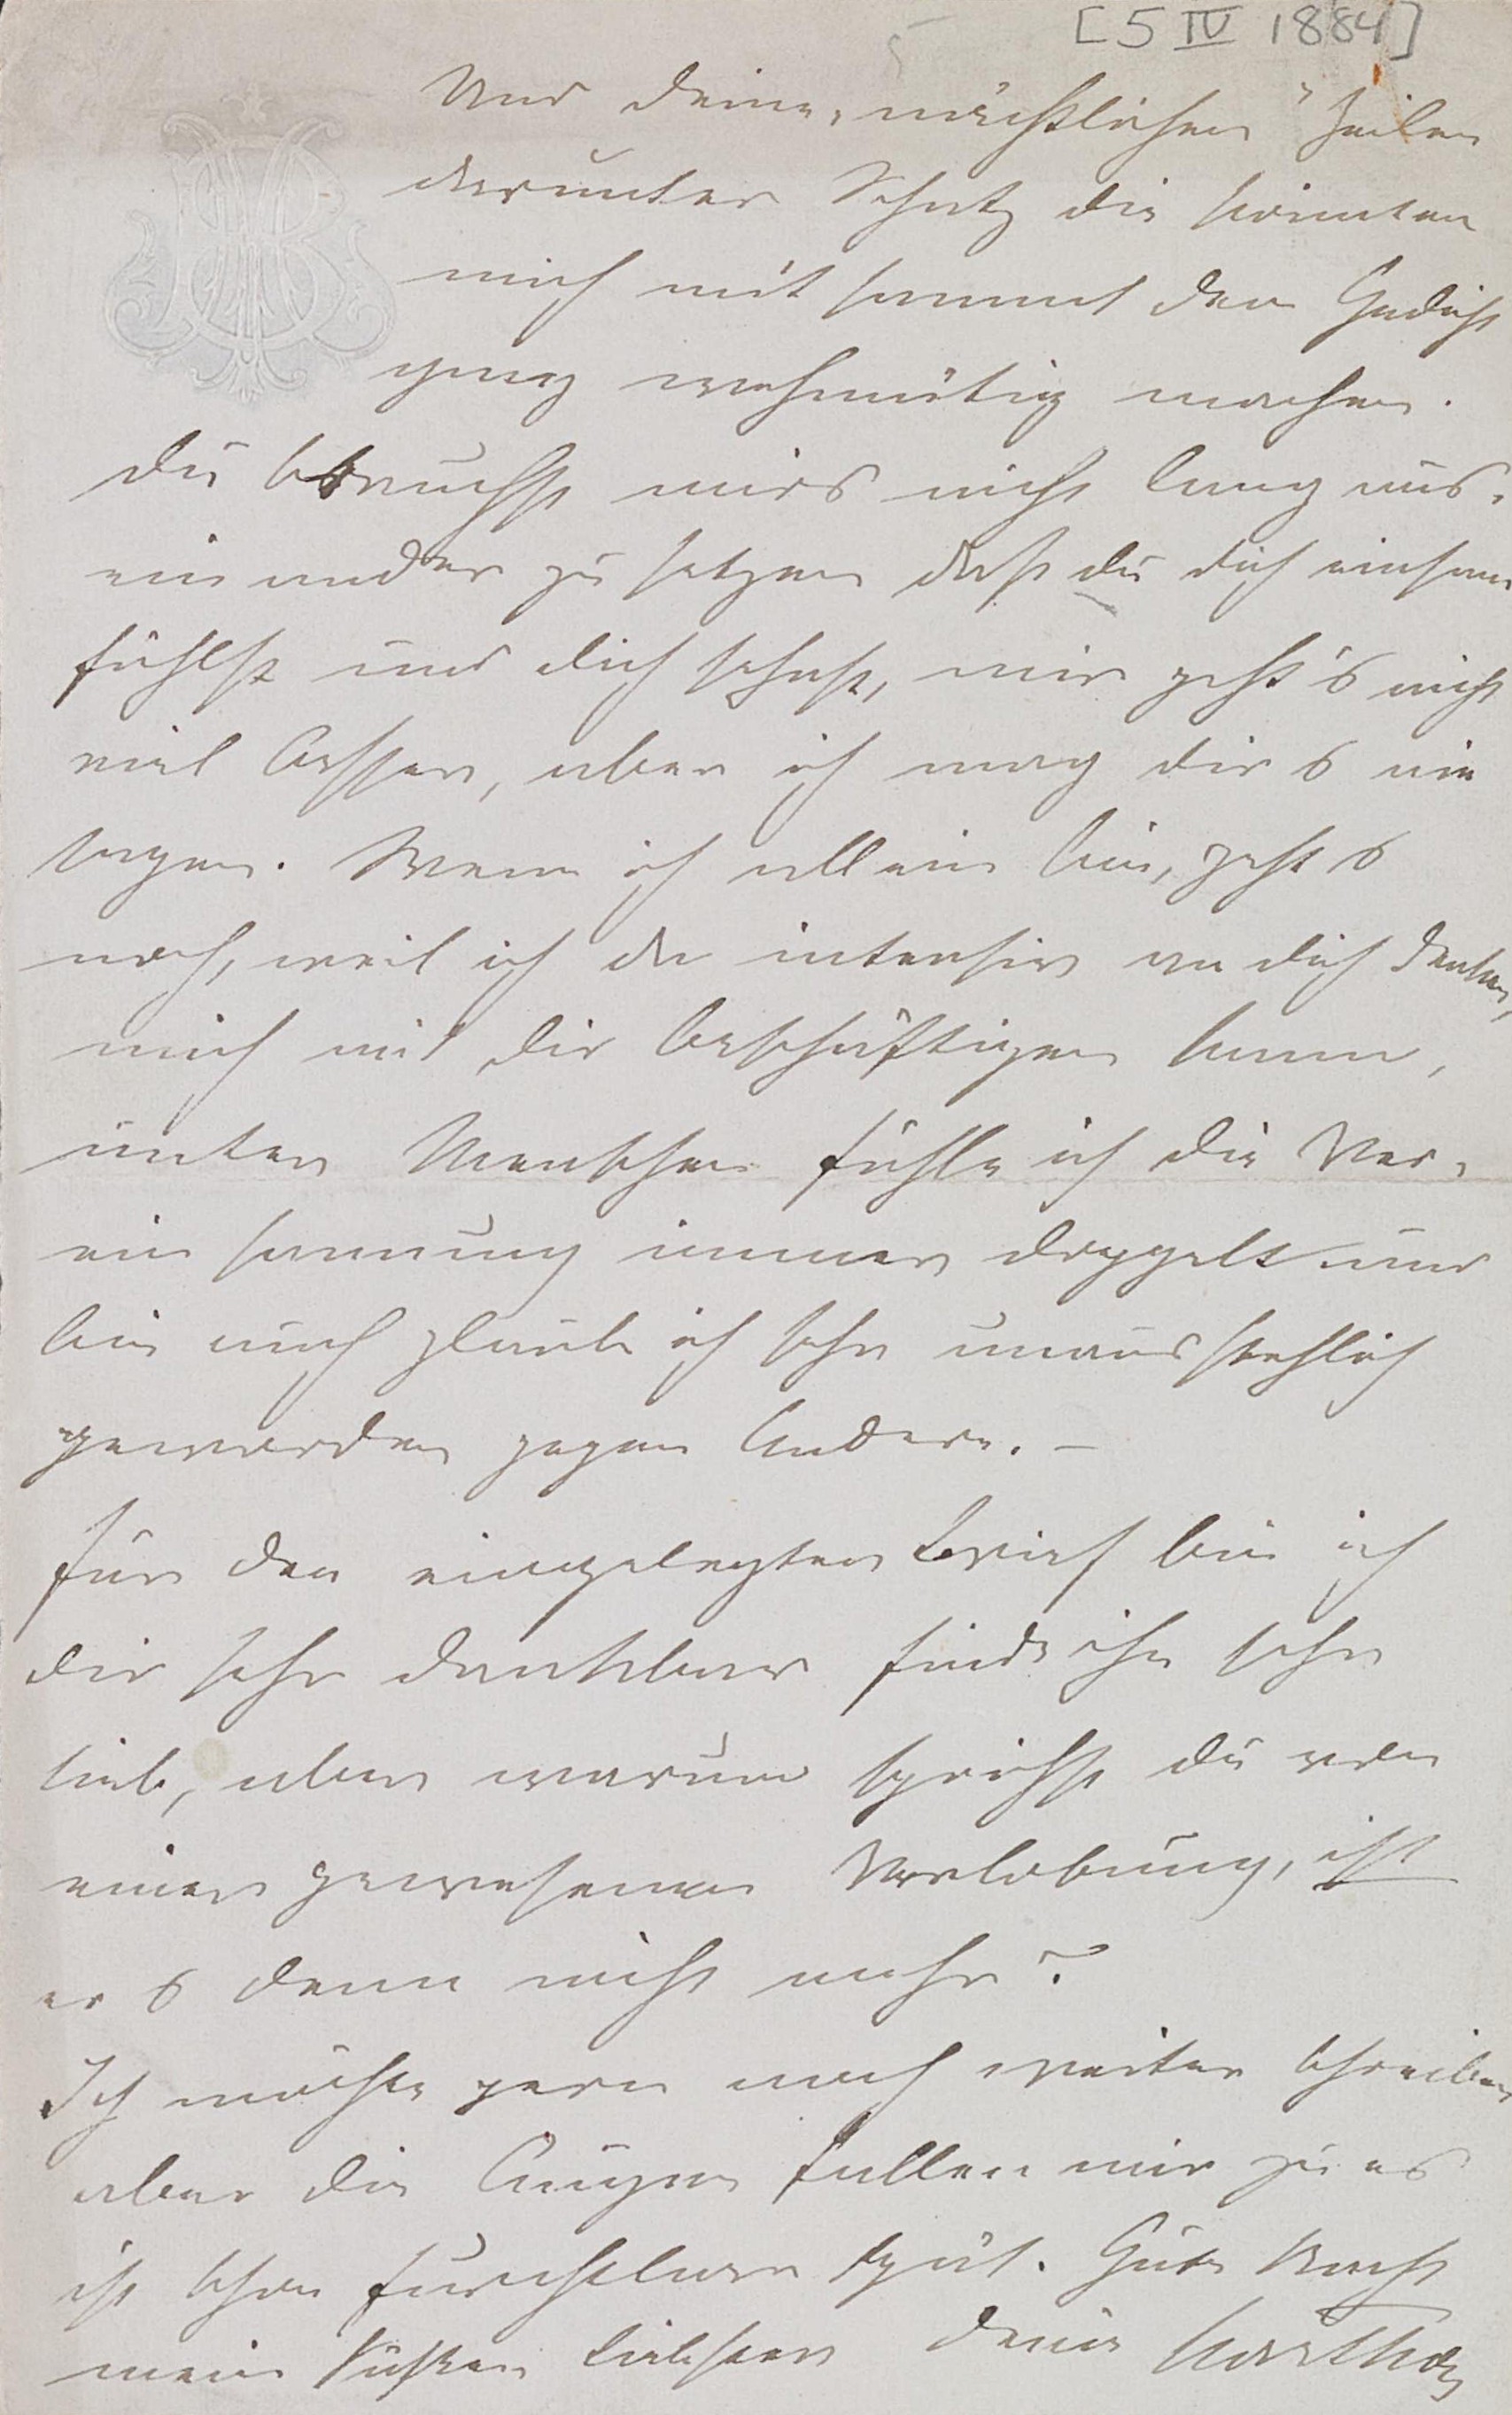 [5 IV 1884]
Und deine „nächtlichen“ Zeilen
darunter Schatz die könnten
mich mit sammt dem Gedicht
ganz wehmütig machen.
Du brauchst mirs nicht lang aus-
einander zu setzen daß du dich einsam
fühlst und dich sehnst, mir geht's nicht
viel besser, aber ich mag dir's nie
sagen. Wenn ich allein bin, geht's
noch, weil ich da intensiv an dich denken,
mich mit dir beschäftigen kann,
unter Menschen fühle ich die Ver-
einsamung immer doppelt und
bin auch glaub ich sehr unausstehlich
geworden gegen Andere. –
Für den eingelegten Brief bin ich
dir sehr dankbar finde ihn sehr
lieb, aber warum sprichst du von
einer gewesenen Verlobung, ist
er's denn nicht mehr?
Ich möchte gern noch weiter schreiben
aber die Augen fallen mir zu es
ist schon furchtbar spät. Gute Nacht
mein süßen Liebsten deine Marthch